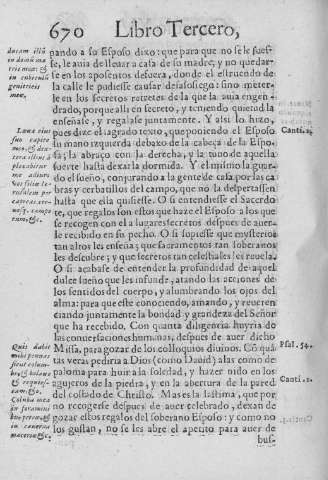 670 Libro Tercero,
pando a su Esposo dixo: que para que no se le fues-
se, le auia de lleuar a casa de su madre, y no quedar-
se en los aposentos defuera, donde el estruendo de
la calle le pudiesse causar desasosiego: sino meter-
le en los secretos retretes de la que la auia engen-
drado, porque alli en secreto, y teniendo quietud la
enseñase, y regalase juntamente. Y assi lo hizo,
pues dize el sagrado texto, que poniendo el Esposo
su mano izquierda debaxo de la cabeça de la Espo-
sa; la abraço con la derecha, y la tuuo de aquella
suerte hasta dexarla dormida. Y el mismo la guar-
dò el sueño, conjurando a la gente de casa por las ca
bras y cerbatillos del campo, que no la despertassen
hasta que ella quisiesse. O si entendiesse el Sacerdo
te, que regalos son estos que haze el Esposo a los que
se recogen con el a lugares secretos despues de auer-
le recibido en su pecho. O si supiesse que misterios
tan altos les enseña; que sacramentos tan soberanos
les descubre; y que secretos tan celestiales les reuela.
O si acabase de entender la profundidad de aquel
dulce sueño que les infunde, atando las acciones de
los sentidos del cuerpo, y alumbrando los ojos del
alma: para que este conociendo, amando, y reueren
ciando juntamente la bondad y grandeza del Señor
que ha recebido. Con quanta diligencia huyria de
las conuersaciones humanas, despues de auer dicho
Missa, para gozar de los colloquios diuinos. Cō quā
tas veras pediria a Dios (como Dauid) alas como de
paloma para huir a la soledad, y hazer nido en los
agujeros de la piedra, y en la abertura de la pared
del costado de Christo. Mas es la lastima, que por
no recogerse despues de auer celebrado, dexan de
gozar estos regalos del soberano Esposo: y como no
los gustan, no se les abre el apetito para auer de
bus-
ducam illū
in domū ma
tris meæ: &
in cubiculū
genitricis
meæ.
Læua eius
sub capite
meo, & dex-
tera illius ā
plexabitur
me adiuro
vos filiæ Ie-
rusalem per
capreas cer-
uosq. campo
rum, &c.
Quis dabit
mihi pennas
sicut colum-
bæ, & volabo
& requies-
cam. &c.
Columba mea
in foramini
bus petræ, &
in cauerna
maceriæ &c.
Canti. 2.
Psal. 54.
Canti. 2.